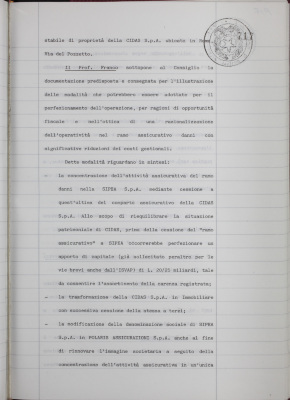 stabile di proprietà della CIDAS S.p.A. ubicato in Roma
Via del Pozzetto.
Il Prof. Franco sottopone al Consiglio la
documentazione predisposta e consegnata per l'illustrazione
delle modalità che potrebbero essere adottate per il
perfezionamento dell'operazione, per ragioni di opportunità
fiscale e nell'ottica di una razionalizzazione
dell'operatività nel ramo assicurativo danni con
significative riduzioni dei costi gestionali.
Dette modalità riguardano in sintesi:
- la concentrazione dell'attività assicurativa del ramo
danni nella SIPEA S.p.A. mediante cessione a
quest'ultima del comparto assicurativo della CIDAS
S.p.A. allo scopo di riequilibrare la situazione
patrimoniale di CIDAS, prima della cessione del "ramo
assicurativo" a SIPEA occorrerebbe perfezionare un
apporto di capitale (già sollecitato peraltro per le
vie brevi anche dall'ISVAP) di L. 20/25 miliardi, tale
da consentire l'assorbimento della carenza registrata;
- la trasformazione della CIDAS S.p.A. in Immobiliare
con successiva cessione della stessa a terzi;
- la modificazione della denominazione sociale di SIPEA
S.p.A. in POLARIS ASSICURAZIONI S.p.A. anche al fine
di rinnovare l'immagine societaria a seguito della
concentrazione dell'attività assicurativa in un'unica